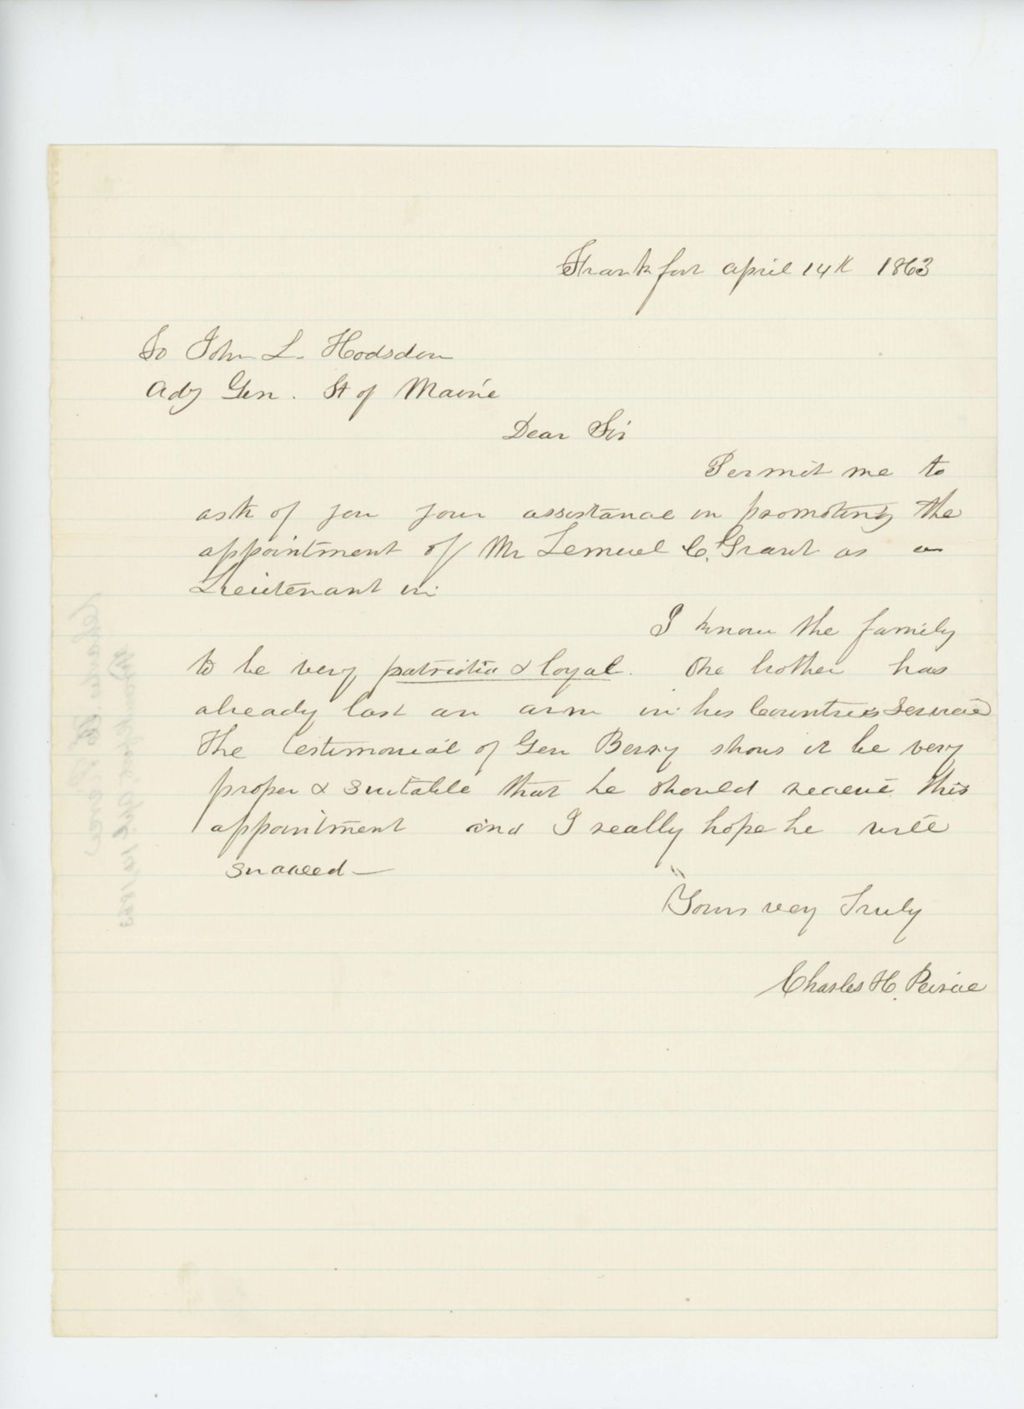 Frankfort April 14th 1863
To John L. Hodsdon
Adj Gen. St of Maine
Dear Sir
Permit me to
ask of you your assistance in promoting the
appointment of Mr Lemuel C. Grant as a
Lieutenant in
I know the family
to be very patriotic & loyal. One brother has
already lost an arm in his Countries Service
The testimonial of Gen Berry shows it be very
proper & suitable that he should receive this
appointment and I really hope he will
succeed—
Yours very Truly
Charles H. Peirce